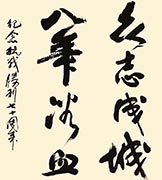 众志成城
八年浴血
纪念抗战勝利七十周年